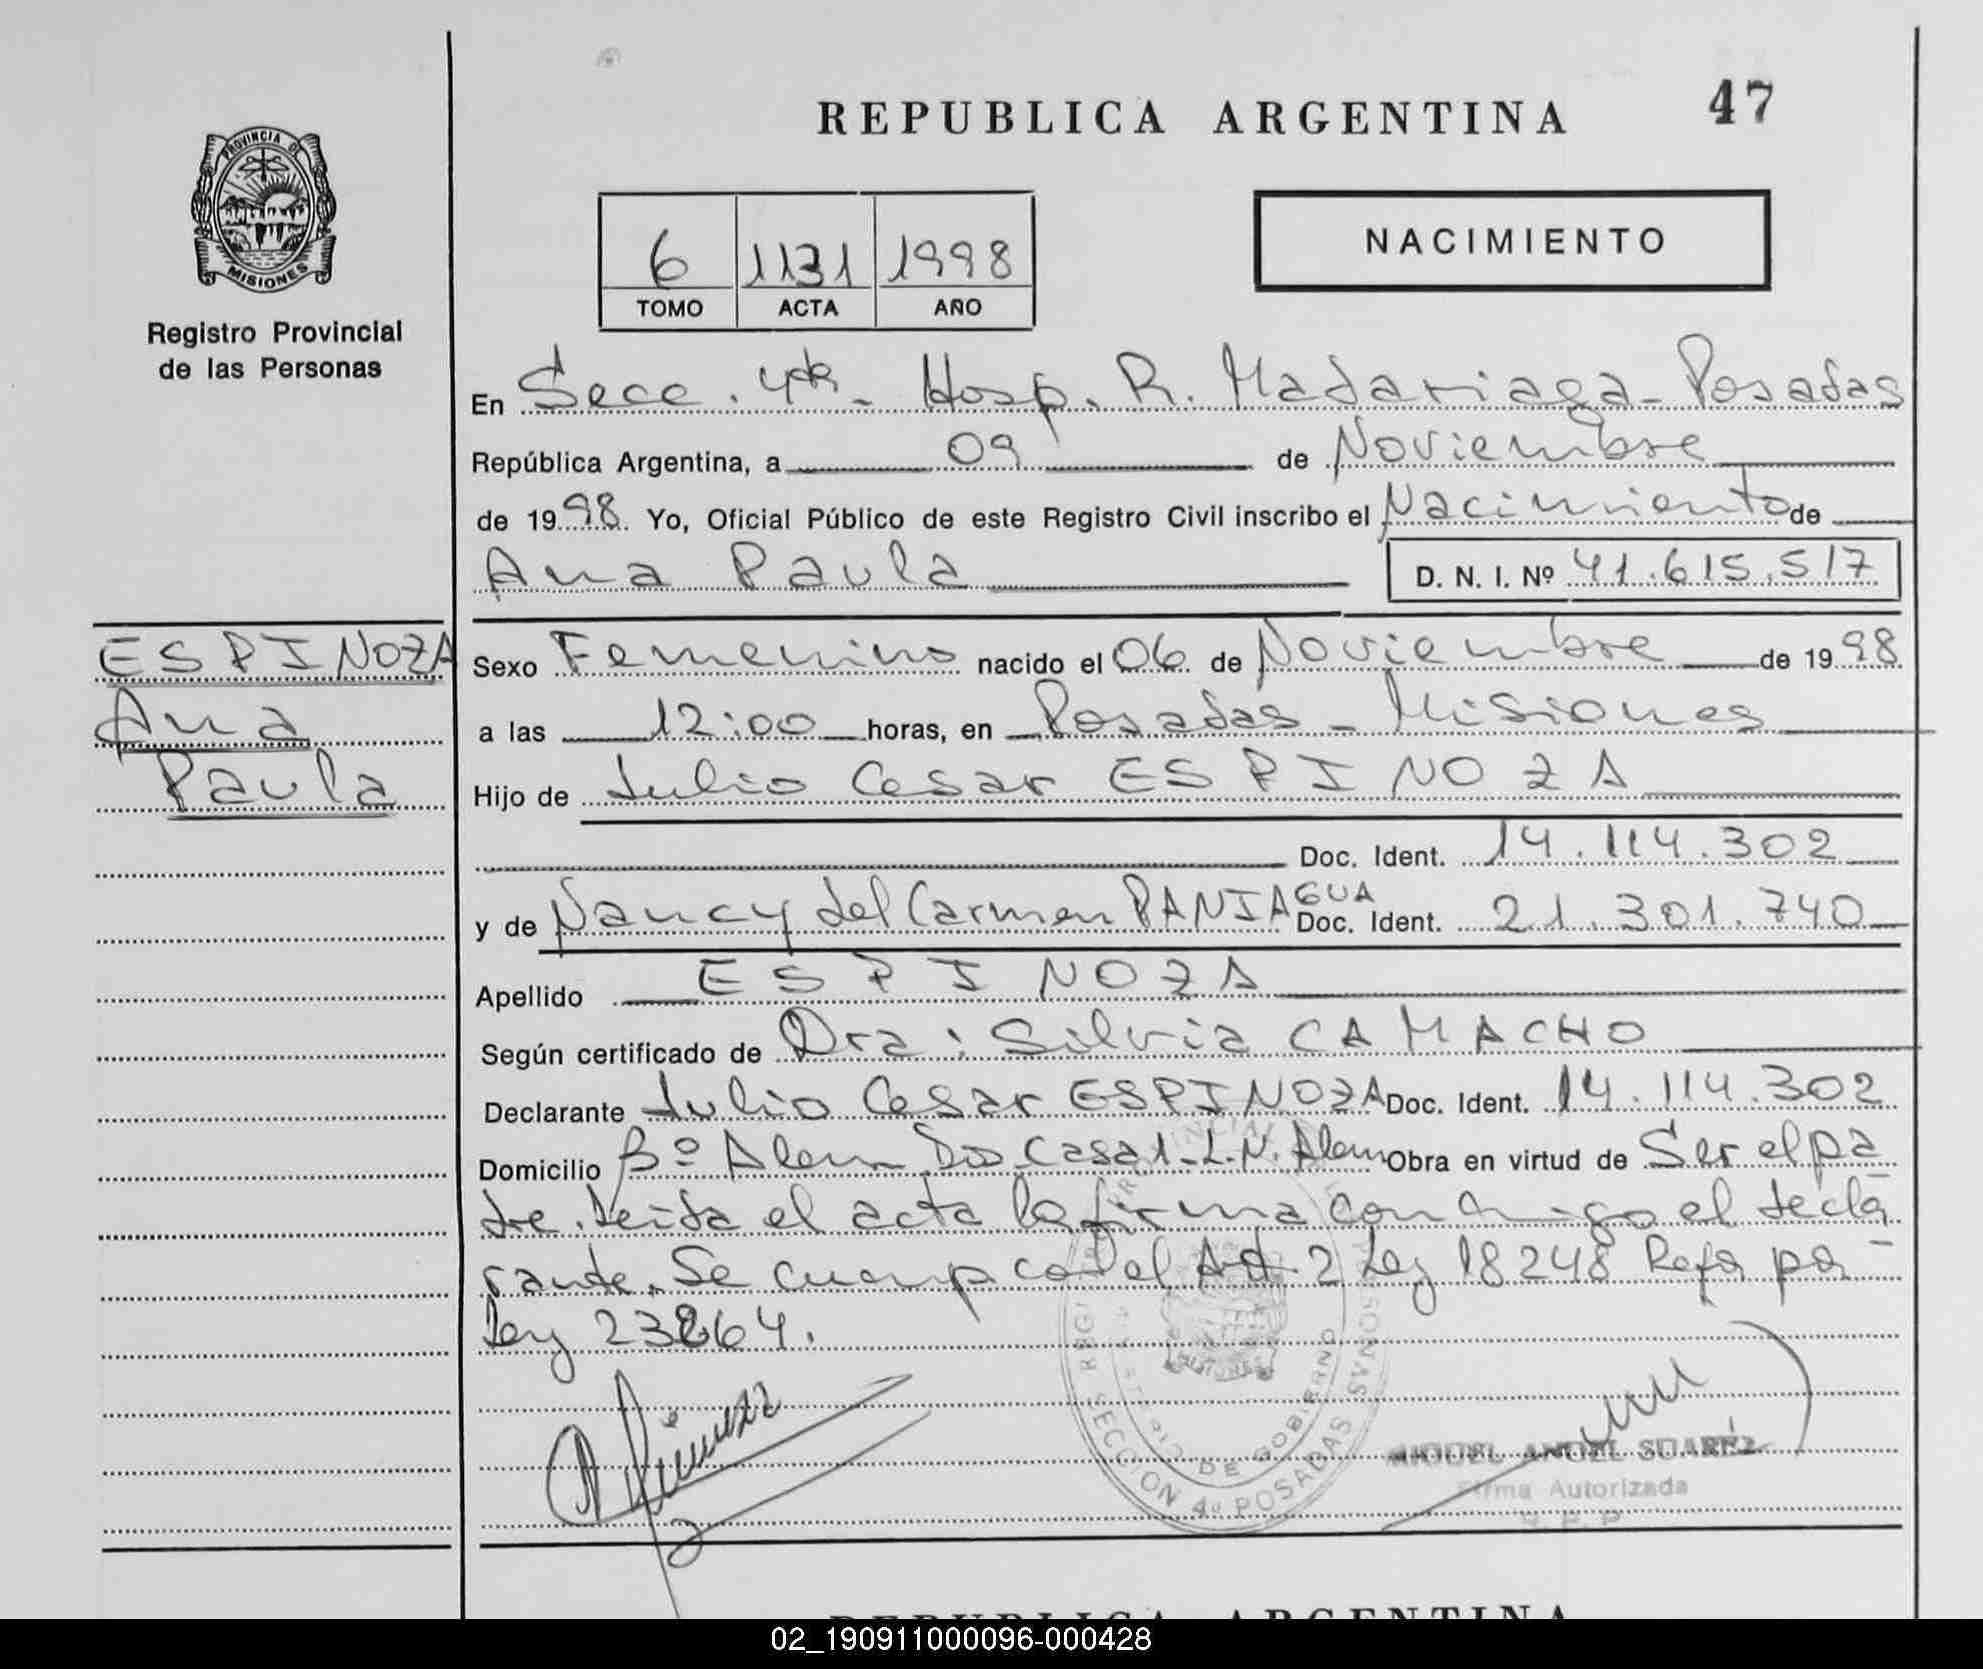 REPUBLICA ARGENTINA 47
PROVINCIA DE
MISIONES
Registro Provincial
de las Personas
6 1131 1998
TOMO ACTA AÑO
NACIMIENTO
En Secc. 4ta. Hosp. R. Madariaga - Posadas
República Argentina, a 09 de Noviembre
de 1998. Yo, Oficial Público de este Registro Civil inscribo el Nacimiento de
Ana Paula D. N. I. Nº 41.615.517
ESPINOZA
Ana
Paula
Sexo Femenino nacido el 06 de Noviembre de 1998
a las 12:00 horas, en Posadas - Misiones
Hijo de Julio Cesar ESPINOZA
Doc. Ident. 14.114.302
y de Nancy del Carmen PANIAGUA Doc. Ident. 21.301.740
Apellido ESPINOZA
Según certificado de Dra: Silvia CAMACHO
Declarante Julio Cesar ESPINOZA Doc. Ident. 14.114.302
Domicilio Bº Alem Dos Casa 1 - L.N. Alem Obra en virtud de Ser el pa
dre. Leida el acta la firma conmigo el decla
rante. Se cump con el Art. 2 Ley 18248 Refor por
Ley 23264.
SECCION 4º POSADAS
DE GOBIERNO
MISIONES
MIGUEL ANGEL SUAREZ
Firma Autorizada
R. P. P.
REPUBLICA ARGENTINA
02_190911000096-000428